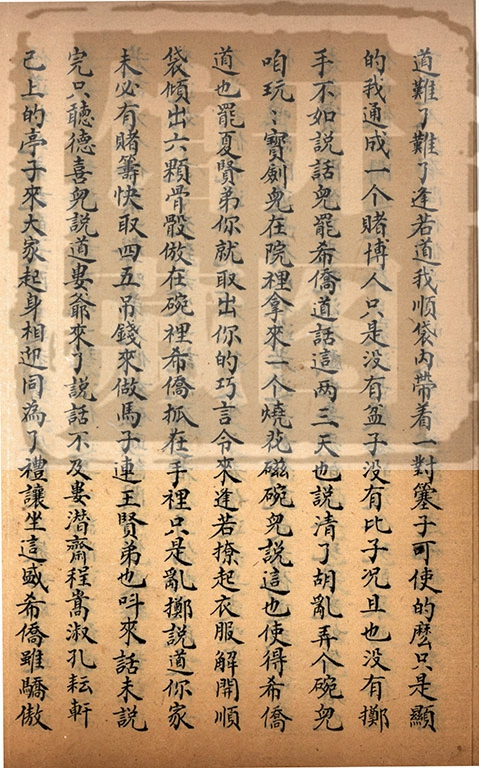 道難了難了逢若道我順袋內帶着一對簺子可使的麽只是顯
的我通成一个賭博人只是没有盆子没有比子况且也没有擲
手不如説話兒罷希僑道話這两三天也説清了胡亂弄个碗兒
咱玩:寳劍兒在院裡拿來一个燒花磁碗兒説這也使得希僑
道也罷夏賢弟你就取出你的巧言令來逢若撩起衣服解開順
袋傾出六顆骨骰倣在碗裡希僑抓在手裡只是亂擲説道你家
未必有賭籌快取四五吊錢來做馬子連王賢弟也呌來話未説
完只聽德喜兒説道婁爺來了説話不及婁潛齋程嵩淑孔耘軒
已上的亭子來大家起身相迎同為了禮讓坐這盛希僑雖驕傲